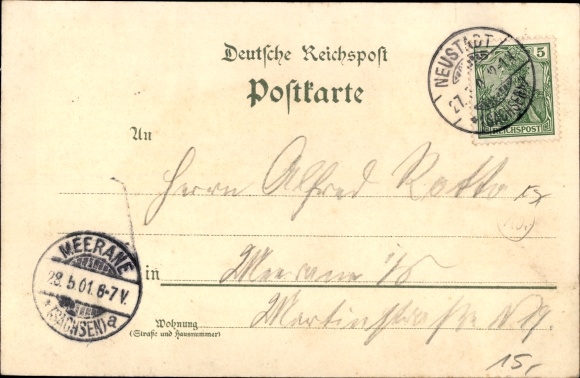 Deutsche Reichspost
Postkarte
NEUSTADT
27.
(SACHSEN)
5
REICHSPOST
An
Herrn Alfred Rotto
MEERANE
28.5.01.6-7V.
(SACHSEN) a
in
Meerane i/S
Wohnung
(Straße und Hausnummer)
Martinstraße
15,-